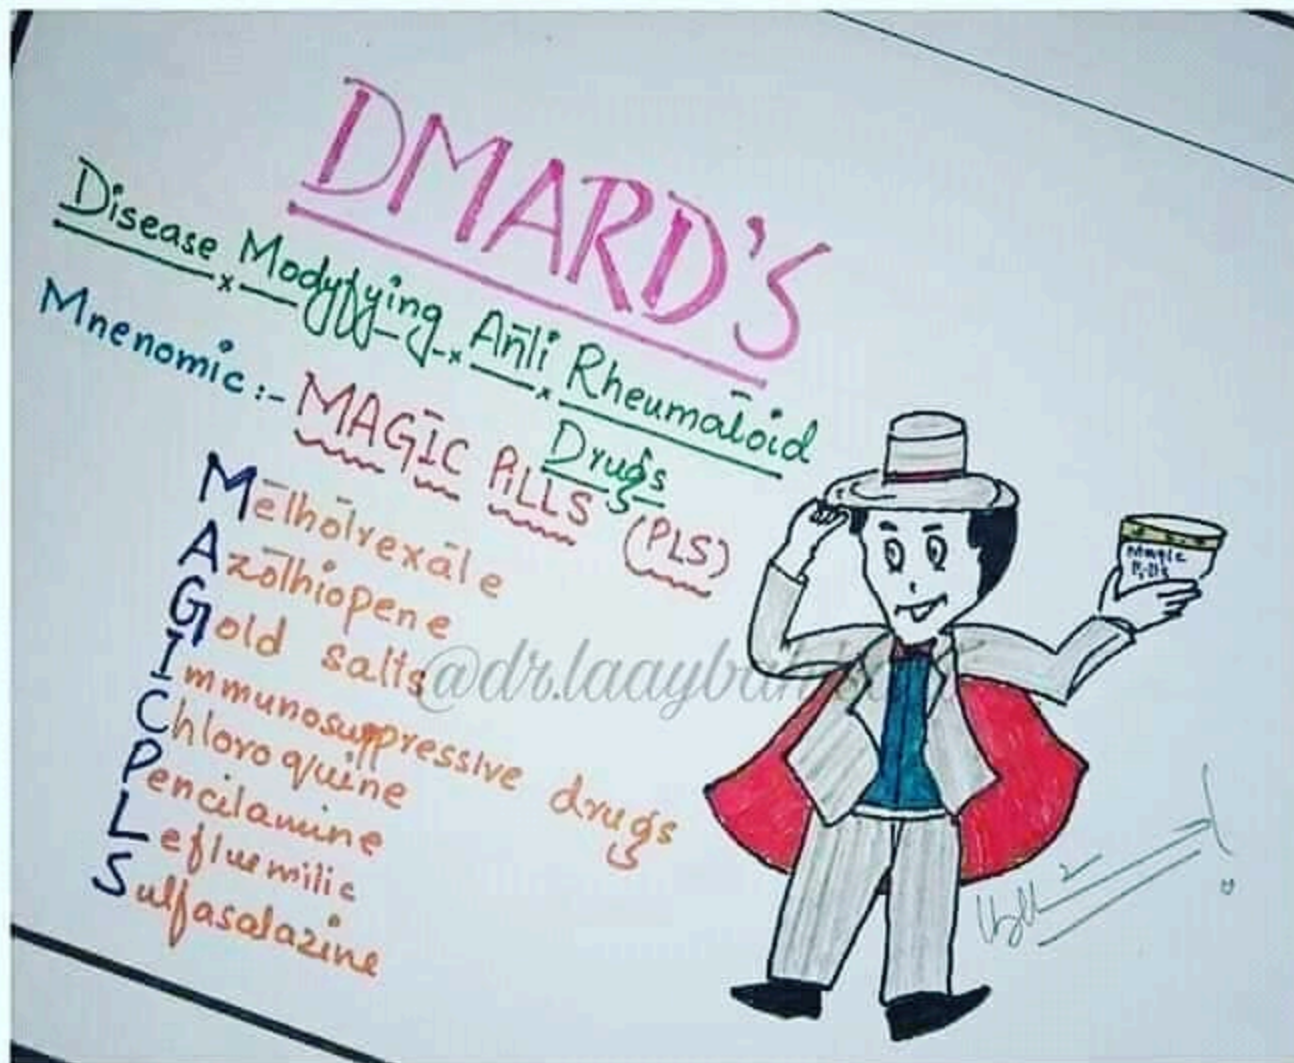 DMARD'S
Disease Modyfying Anti Rheumatoid
Drugs
Mnenomic :- MAGIC PILLS (PLS)
Methotrexate
Azothiopene
Gold salts
Immunosuppressive drugs
Chloroquine
Pencilamine
Efluemilic
Sulfasalazine
Magic
Pills